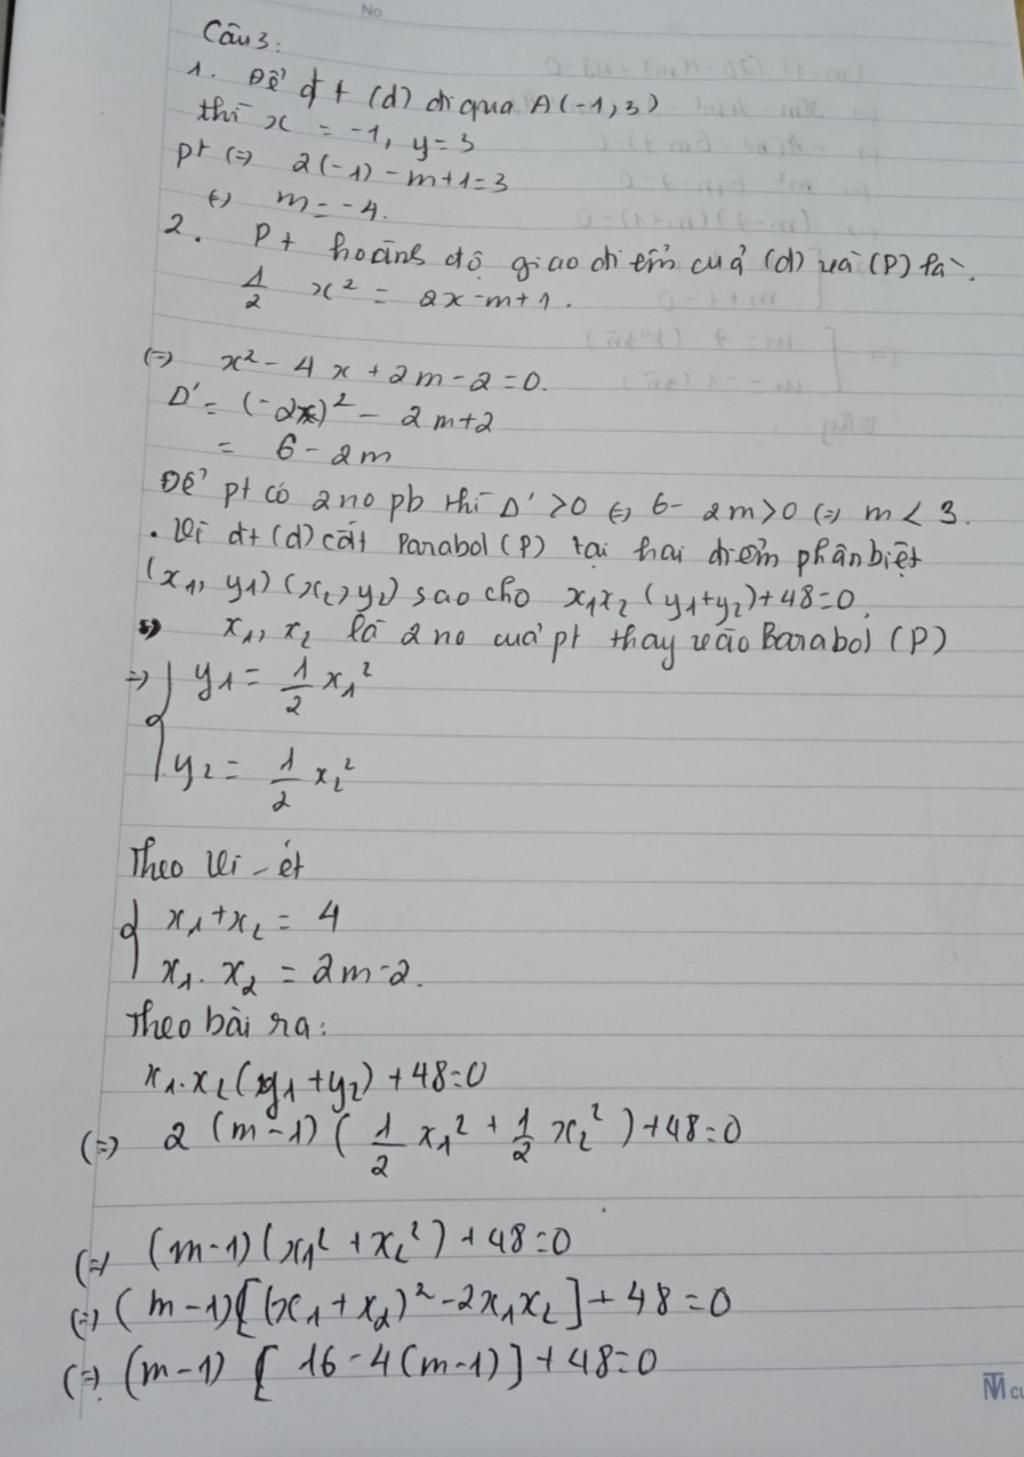 No
Câu 3:
1. Để đt (d) đi qua A(-1,3)
thì x = -1, y = 3
pt (=) 2(-1) - m+1=3
(=) m = -4.
2. Pt hoành độ giao điểm của (d) và (P) là:
1/2 x² = 2x - m + 1.
(=) x² - 4x + 2m - 2 = 0.
Δ' = (-2)² - 2m+2
= 6 - 2m
Để pt có 2 no pb thì Δ' >0 (=) 6 - 2m>0 (=) m < 3.
. Vì đt (d) cắt Parabol (P) tại hai điểm phân biệt
(x₁, y₁) (x₂, y₂) sao cho x₁x₂ (y₁+y₂)+48=0.
=> x₁, x₂ là 2 no của pt thay vào Parabol (P)
=> { y₁ = 1/2 x₁²
y₂ = 1/2 x₂²
Theo Vi-ét
{ x₁+x₂ = 4
x₁. x₂ = 2m-2.
Theo bài ra:
x₁.x₂(y₁+y₂)+48=0
(=) 2 (m-1) ( 1/2 x₁² + 1/2 x₂² ) +48=0
(=) (m-1) (x₁² + x₂²) + 48=0
(=) (m-1)[(x₁+x₂)² - 2x₁x₂] + 48 = 0
(=) (m-1) [ 16 - 4(m-1)] + 48=0